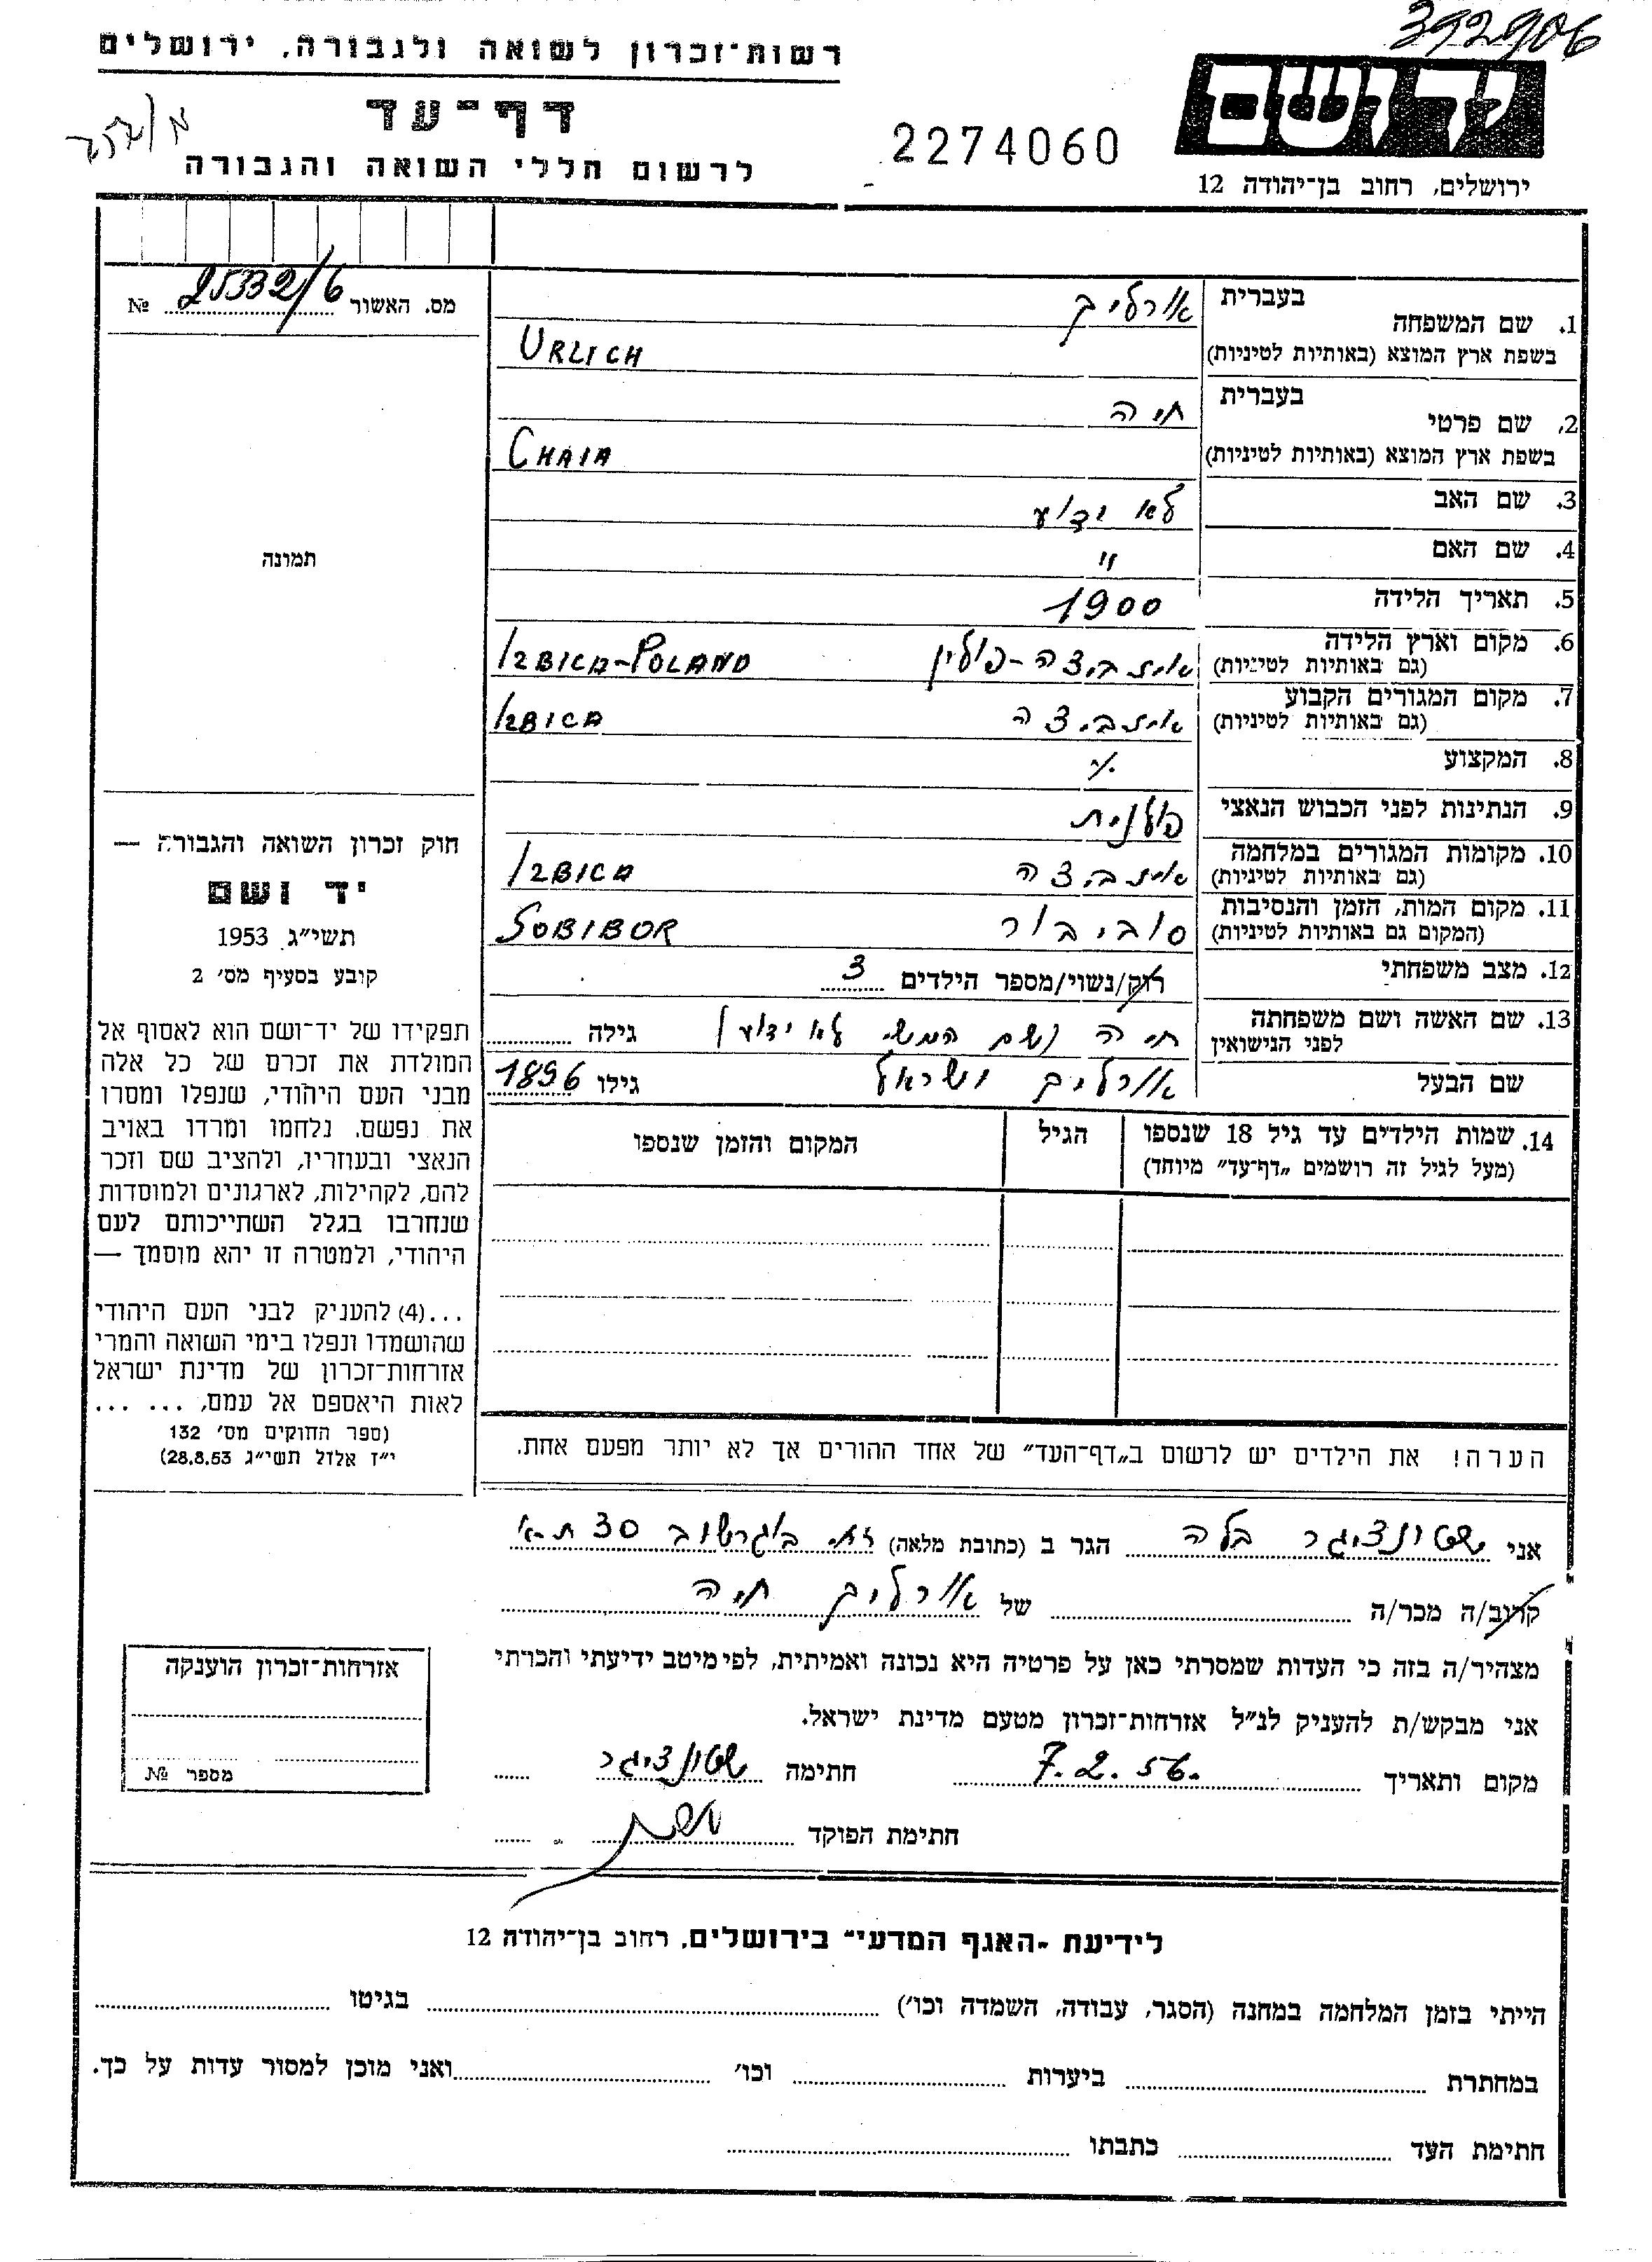 392906
רשות־זכרון לשואה ולגבורה, ירושלים
יד ושם
דף־עד
2274060
לרשום חללי השואה והגבורה
ירושלים, רחוב בן־יהודה 12
מס. האשור 25332/6 №
1. שם המשפחה
בעברית אורליך
בשפת ארץ המוצא (באותיות לטיניות) URLICH
2. שם פרטי
בעברית חיה
בשפת ארץ המוצא (באותיות לטיניות) CHAIA
3. שם האב לא ידוע
4. שם האם "
תמונה
5. תאריך הלידה 1900
6. מקום וארץ הלידה
(גם באותיות לטיניות) איזביצה-פולין IZBICA-POLAND
7. מקום המגורים הקבוע
(גם באותיות לטיניות) איזביצה IZBICA
8. המקצוע
9. הנתינות לפני הכבוש הנאצי פולנית
10. מקומות המגורים במלחמה
(גם באותיות לטיניות) איזביצה IZBICA
11. מקום המות, הזמן והנסיבות
(המקום גם באותיות לטיניות) סוביבור SOBIBOR
12. מצב משפחתי רוק/נשוי/מספר הילדים 3
13. שם האשה ושם משפחתה
לפני הנישואין חיה (שם המש' לא ידוע) גילה
שם הבעל אורליך ישראל גילו 1896
14. שמות הילדים עד גיל 18 שנספו
(מעל לגיל זה רושמים „דף־עד" מיוחד)
הגיל
המקום והזמן שנספו
חוק זכרון השואה והגבורה —
יד ושם
תשי"ג 1953
קובע בסעיף מס' 2
תפקידו של יד־ושם הוא לאסוף אל
המולדת את זכרם של כל אלה
מבני העם היהודי, שנפלו ומסרו
את נפשם, נלחמו ומרדו באויב
הנאצי ובעוזריו, ולהציב שם וזכר
להם, לקהילות, לארגונים ולמוסדות
שנחרבו בגלל השתייכותם לעם
היהודי, ולמטרה זו יהא מוסמך —
...(4) להעניק לבני העם היהודי
שהושמדו ונפלו בימי השואה והמרי
אזרחות־זכרון של מדינת ישראל
לאות היאספם אל עמם, ... ...
(ספר החוקים מס' 132
י"ז אלול תשי"ג 28.8.53)
הערה! את הילדים יש לרשום ב„דף־העד" של אחד ההורים אך לא יותר מפעם אחת.
אני שטונציגר בלה הגר ב (כתובת מלאה) רח' בוגרשוב 30 ת"א
קרוב/ה מכר/ה של אורליך חיה
מצהיר/ה בזה כי העדות שמסרתי כאן על פרטיה היא נכונה ואמיתית, לפי מיטב ידיעתי והכרתי
אני מבקש/ת להעניק לנ"ל אזרחות־זכרון מטעם מדינת ישראל.
מקום ותאריך 7.2.56. חתימה שטונציגר
חתימת הפוקד
אזרחות־זכרון הוענקה
מספר №
לידיעת „האגף המדעי" בירושלים, רחוב בן־יהודה 12
הייתי בזמן המלחמה במחנה (הסגר, עבודה, השמדה וכו') בגיטו
במחתרת ביערות וכו' ואני מוכן למסור עדות על כך.
חתימת העד כתבתו